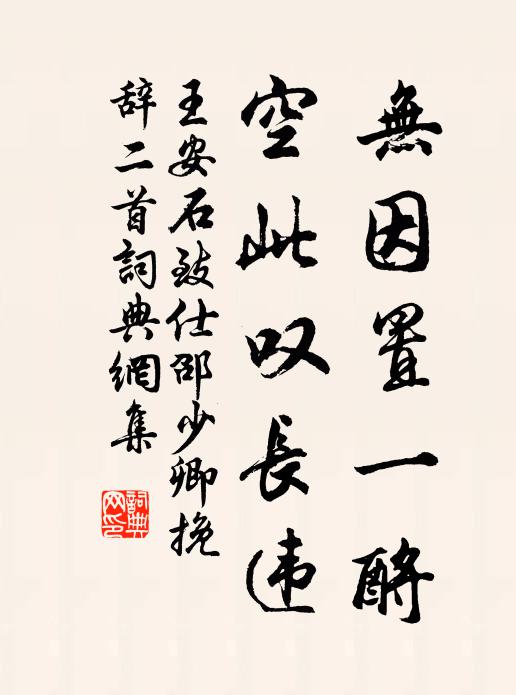 無因置一酹
空此叹長违
王安石致仕邵少卿挽
辞二首詞典網集
詞典网印